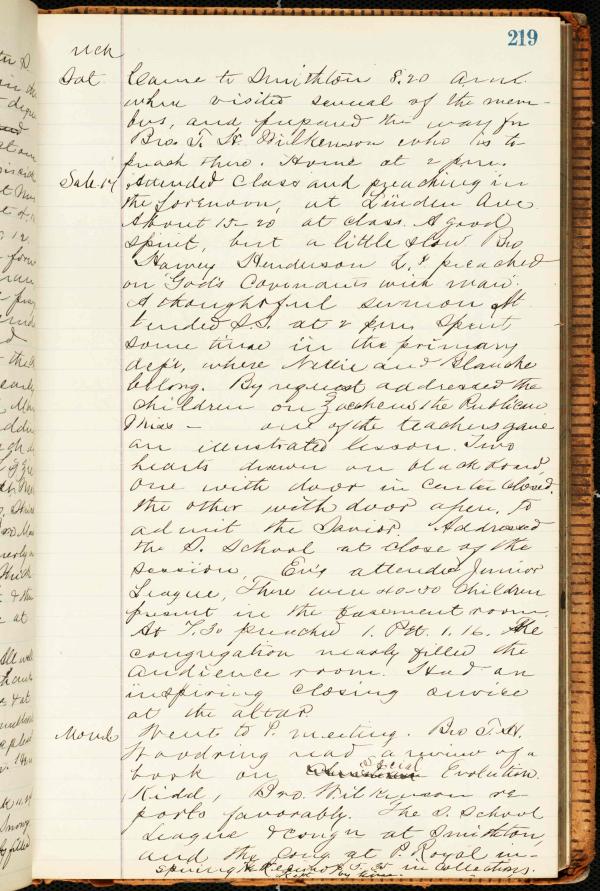 219
Mch
Sat Came to Smithton 8.20 A.M.
where visited several of the mem-
bers, and prepared the way for
Bro. T. H. Wilkenson who is to
preach there. Home at 2 p.m.
Sab 17 Attended Class and preaching in
the forenoon, at Linden Ave
About 15-20 at class. A good
spirit, but a little slow Bro
Harvey Henderson preached
on "God's Covenants with man".
A thoughtful sermon At
tended S.S. at 2 p.m. Spent
some time in the primary
dept, where Nellie and Blanche
belong. By request addressed the
children on Zaccheus the Publican
Miss — one of the teachers gave
an illustrated lesson. Two
hearts drawn on blackboard,
one with door in center closed.
the other with door open, to
admit the Savior. Addressed
the S. School at close of the
session. Ev'g attended Junior
League, There were 40-50 children
present in the basement room.
At 7.30 preached 1. Pet. 1.16. The
congregation nearly filled the
audience room. Had an
inspiring closing service
at the altar.
Mond Went to P. meeting. Bro T. H.
Woodring read a review of a
book on Social Evolution.
Kidd, Bro. Wilkinson re-
ports favorably. The S. School
League & congn at Smithton,
and the Cong. at P. Royal in-
spiring in collections.